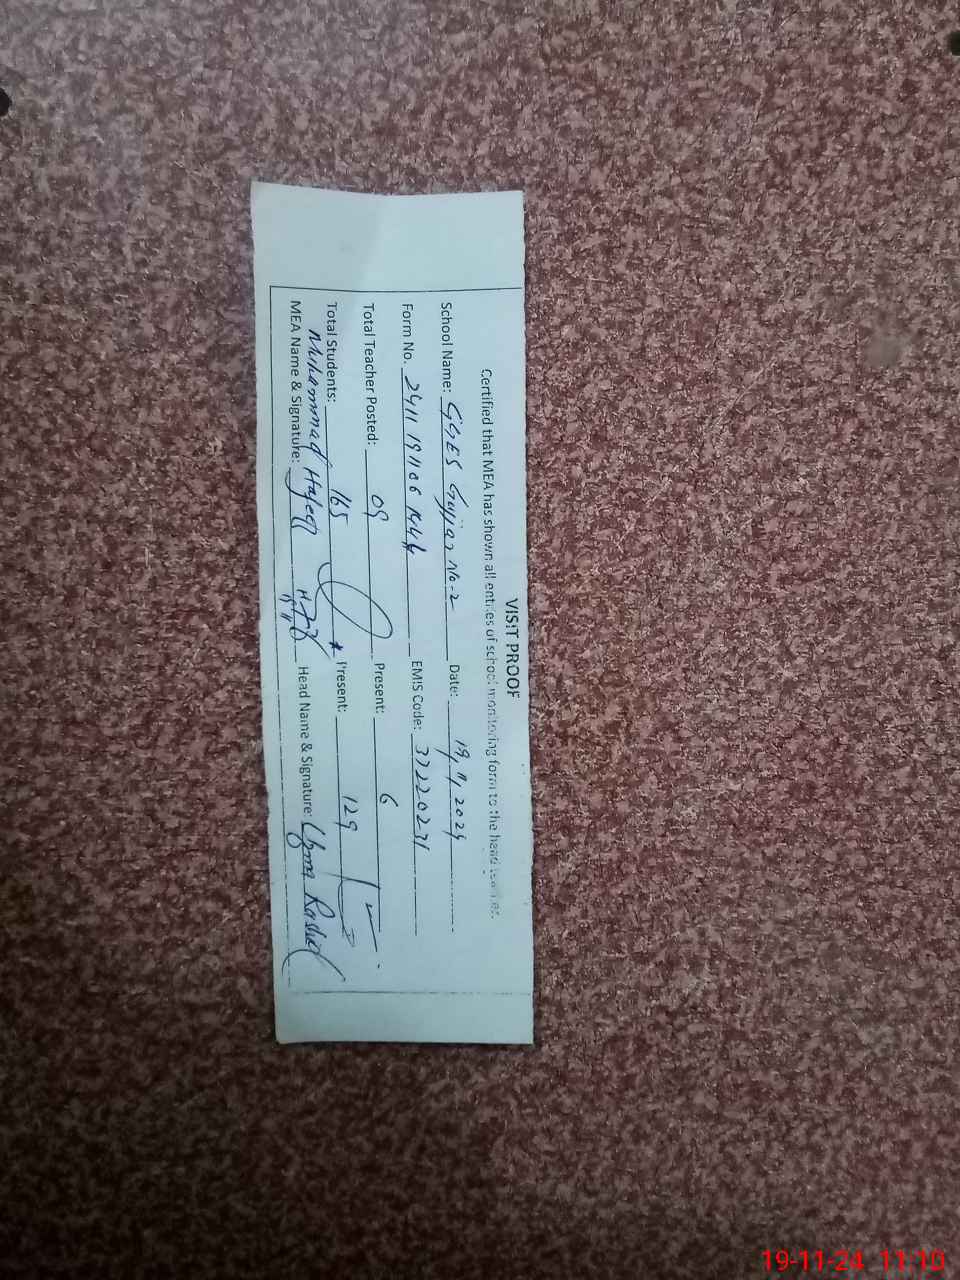 VISIT PROOF
Certified that MEA has shown all entries of school monitoring form to the head teacher.
School Name: GGES Gujjar No-2 Date: 19,11,2024
Form No. 2411 191106 1444 EMIS Code: 37220271
Total Teacher Posted: 09 Present: 6
Total Students: 165 Present: 129
MEA Name & Signature: Muhammad Hafeez Head Name & Signature: Uzma Rashid
19-11-24 11:10